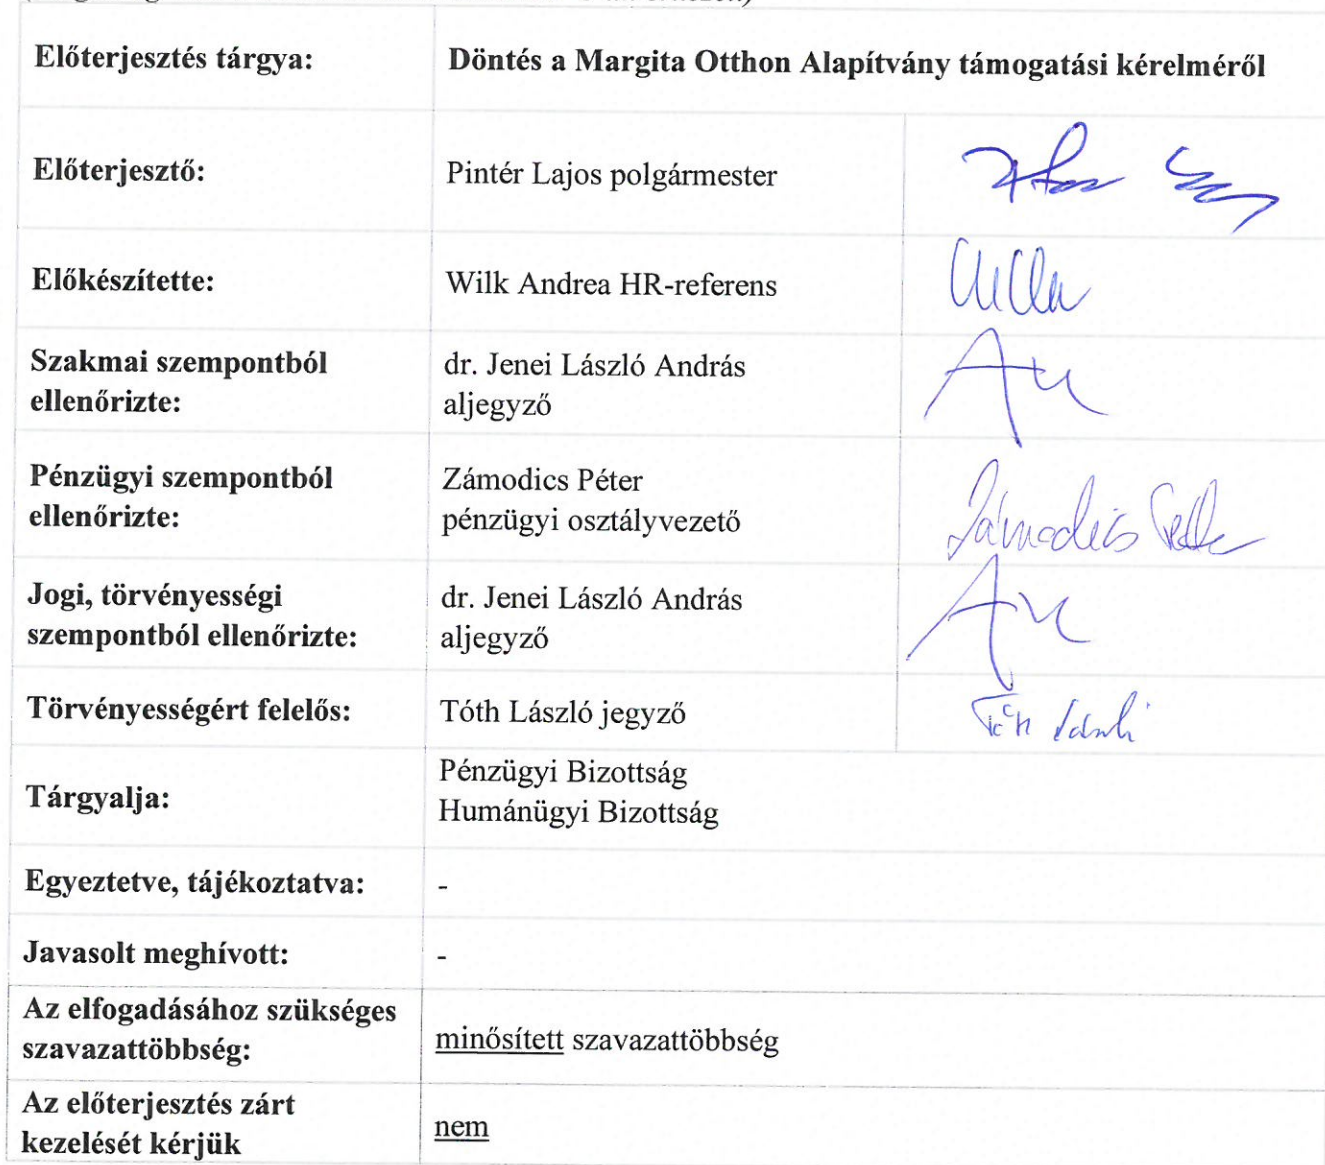 Előterjesztés tárgya: Döntés a Margita Otthon Alapítvány támogatási kérelméről
Előterjesztő: Pintér Lajos polgármester
Előkészítette: Wilk Andrea HR-referens
Szakmai szempontból
ellenőrizte:
dr. Jenei László András
aljegyző
Pénzügyi szempontból
ellenőrizte:
Zámodics Péter
pénzügyi osztályvezető
Zámodics Péter
Jogi, törvényességi
szempontból ellenőrizte:
dr. Jenei László András
aljegyző
Törvényességért felelős: Tóth László jegyző
Tóth László
Tárgyalja:
Pénzügyi Bizottság
Humánügyi Bizottság
Egyeztetve, tájékoztatva: -
Javasolt meghívott: -
Az elfogadásához szükséges
szavazattöbbség:
minősített szavazattöbbség
Az előterjesztés zárt
kezelését kérjük
nem